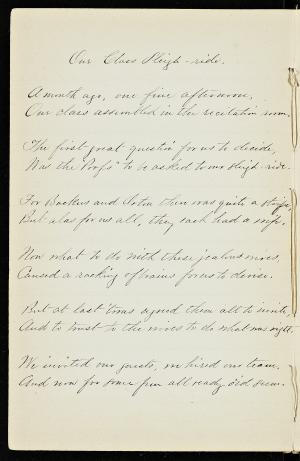 Our Class Sleigh-ride.
A month ago, one fine afternoon,
Our class assembled in the recitation room.
The first great questin' for us to decide,
Was the Profs to be asked to our sleigh-ride.
For Backus and Orton there was quite a strife,
But alas for us all, they each had a wife.
Now what to do with these jealous wives,
Caused a racking of brains for us to devise.
But at last 'twas agreed them all to invite,
And to trust to the wives to do what was right.
We invited our guests, we hired our team,
And now for some fun all ready did seem.